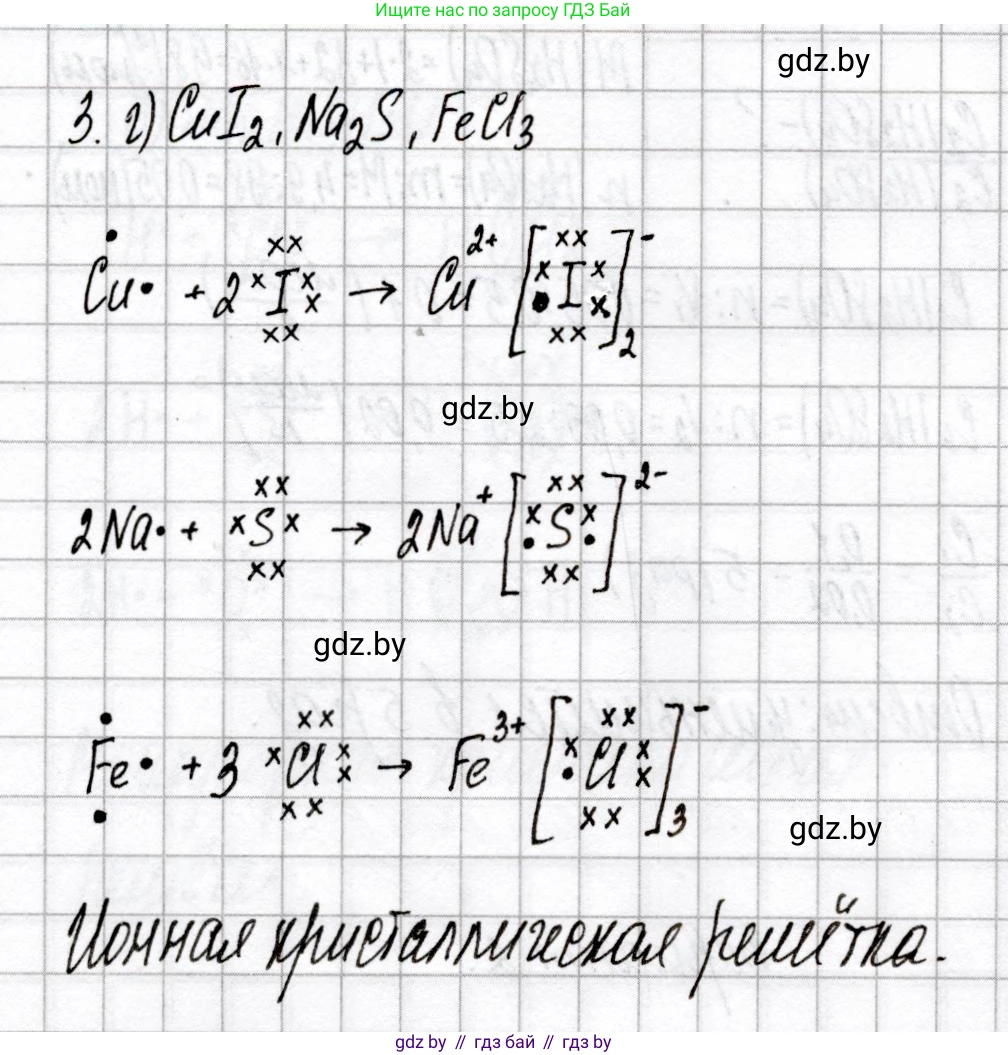 Ищите нас по запросу ГДЗ Бай
gdz.by
3. г) CuI₂, Na₂S, FeCl₃
Cu· + 2 I → Cu²⁺ [I]₂⁻
gdz.by
2Na· + S → 2Na⁺ [S]²⁻
gdz.by
Fe· + 3 Cl → Fe³⁺ [Cl]₃⁻
gdz.by
Ионная кристаллическая решётка.
gdz.by // гдз бай // гдз by